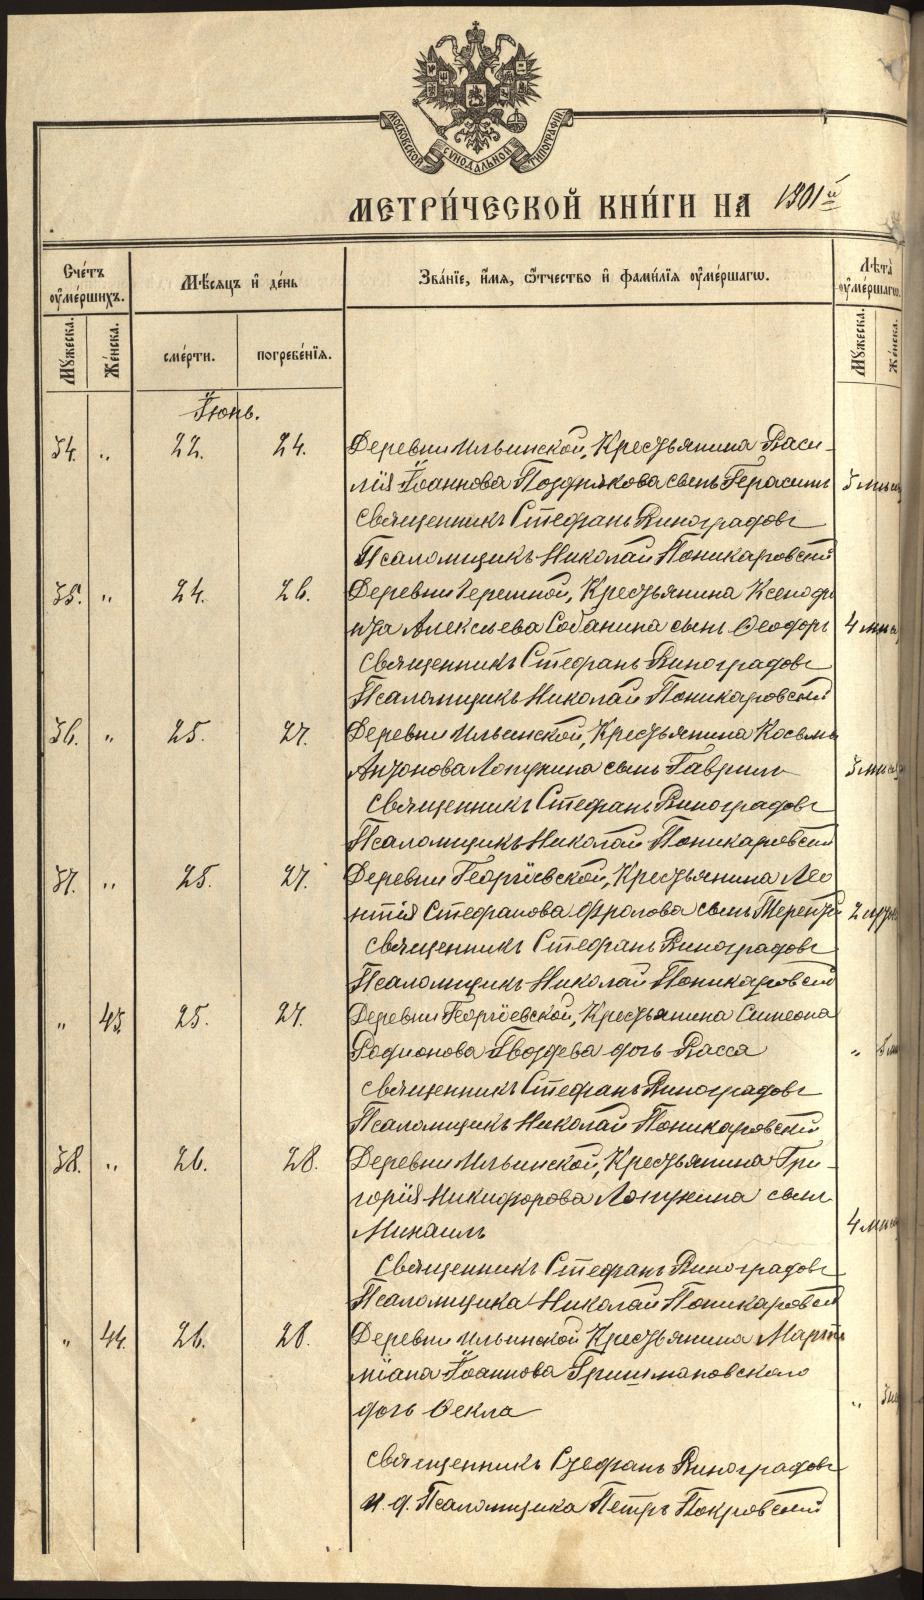 МОСКОВСКОЙ СѴНОДАЛЬНОЙ ТИПОГРАФІИ
МЕТРИ́ЧЕСКОЙ КНИ́ГИ НА 1901 й
Сче́тъ оу҆ме́ршихъ.
Мѣ́сяцъ и҆ де́нь
Зва́нїе, и҆́мя, ѻ҆́тчество и҆ фами́лїя оу҆ме́ршагѡ.
Лѣ́та оу҆ме́ршагѡ.
Мꙋ́жеска.
Же́нска.
сме́рти.
погребе́нїя.
Мꙋ́жеска.
Же́нска.
Іюнь.
34. " 22. 24. Деревни Ильинской, Крестьянина Васи-
лія Іоаннова Позднякова сынъ Герасимъ 3 мѣсяц
Священникъ Стефанъ Виноградовъ
Псаломщикъ Николай Поникаровскій
35. " 24. 26. Деревни Черемной, Крестьянина Ксенофо
нта Алексѣева Собанина сынъ Ѳеодоръ 4 мѣся
Священникъ Стефанъ Виноградовъ
Псаломщикъ Николай Поникаровскій
36. " 25. 27. Деревни Ильинской, Крестьянина Косьмы
Антонова Лопухина сынъ Гавріилъ 3 мѣся
Священникъ Стефанъ Виноградовъ
Псаломщикъ Николай Поникаровскій
37. " 25. 27. Деревни Георгіевской, Крестьянина Лео
нтія Стефанова Фролова сынъ Терентій 2
Священникъ Стефанъ Виноградовъ
Псаломщикъ Николай Поникаровскій
" 43. 25. 27. Деревни Георгіевской, Крестьянина Симеона
Родионова Гвоздева дочь Васса "
Священникъ Стефанъ Виноградовъ
Псаломщикъ Николай Поникаровскій
38. " 26. 28. Деревни Ильинской, Крестьянина Гри-
горія Никифорова Лопухина сынъ
Михаилъ 4 мѣся
Священникъ Стефанъ Виноградовъ
Псаломщика Николай Поникаровскій
" 44. 26. 28. Деревни Ильинской Крестьянина Марти
ніана Іоаннова Гришмановскаго
дочь Ѳекла " 3
Священникъ Стефанъ Виноградовъ
И. д. Псаломщика Петръ Покровскій